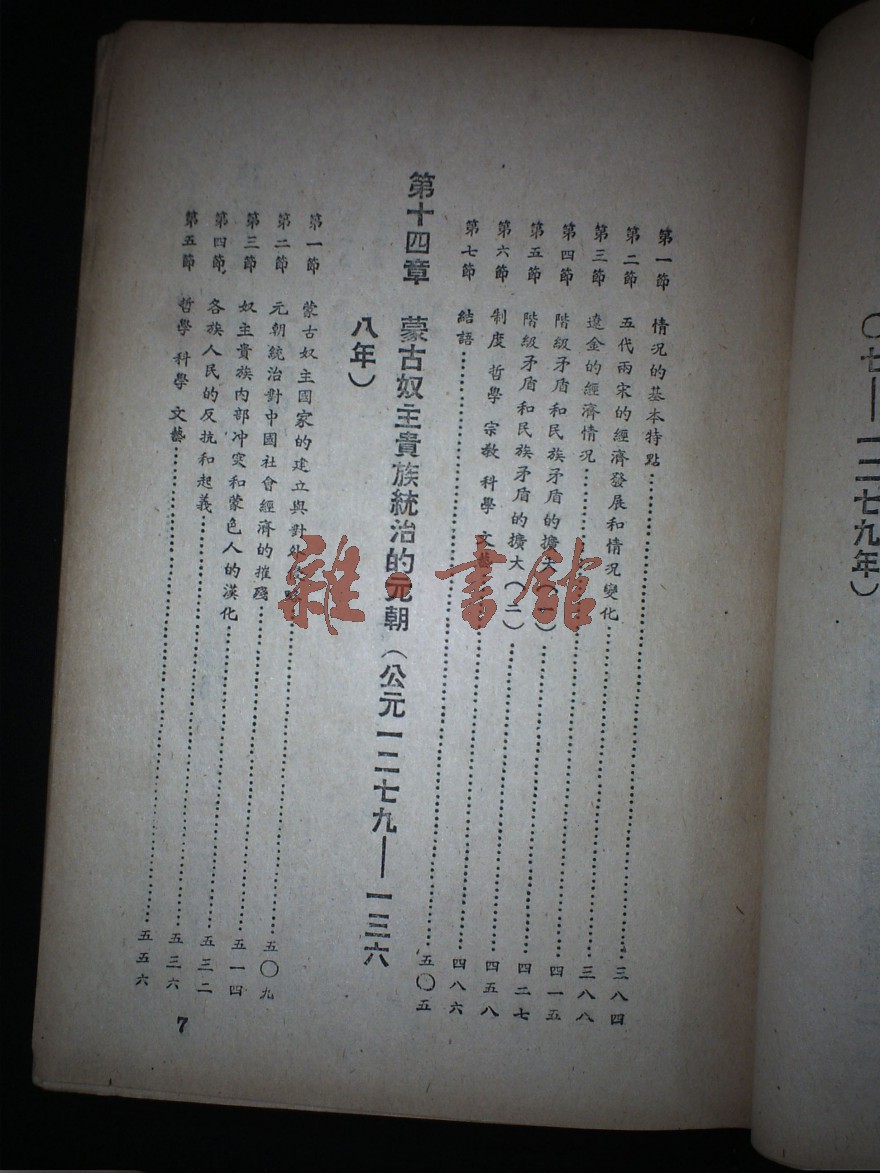 〇七——一二七九年）
第一節 情況的基本特點……三八四
第二節 五代兩宋的經濟發展和情況變化……三八八
第三節 遼金的經濟情況……四一五
第四節 階級矛盾和民族矛盾的擴大（一）……四二七
第五節 階級矛盾和民族矛盾的擴大（二）……四五八
第六節 制度 哲學 宗教 科學 文藝……四八六
第七節 結語……五〇五
第十四章 蒙古奴主貴族統治的元朝（公元一二七九——一三六
八年）
第一節 蒙古奴主國家的建立與對外侵略……五〇九
第二節 元朝統治對中國社會經濟的摧殘……五一四
第三節 奴主貴族內部冲突和蒙色人的漢化……五三二
第四節 各族人民的反抗和起義……五三六
第五節 哲學 科學 文藝……五五六
7
雜·書館